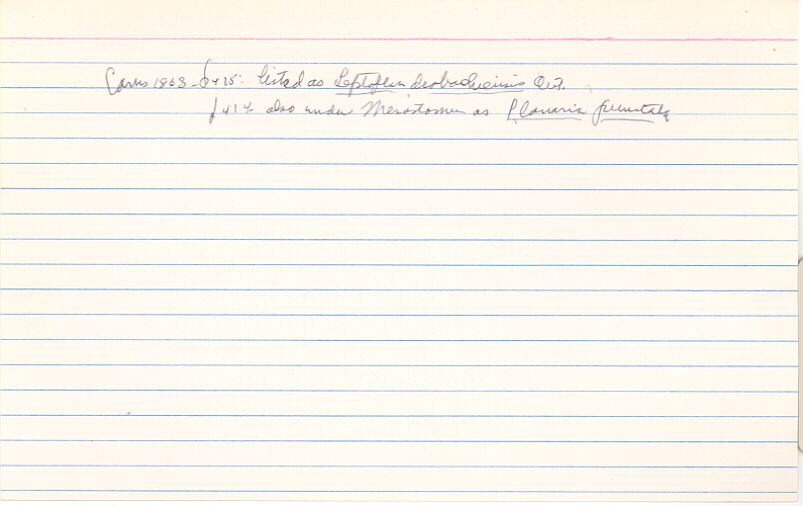 Carus 1863 - p 425: listed as Leptoplana droebachensis Oe.
p 414 also under Mesostomum as Planaria punctata